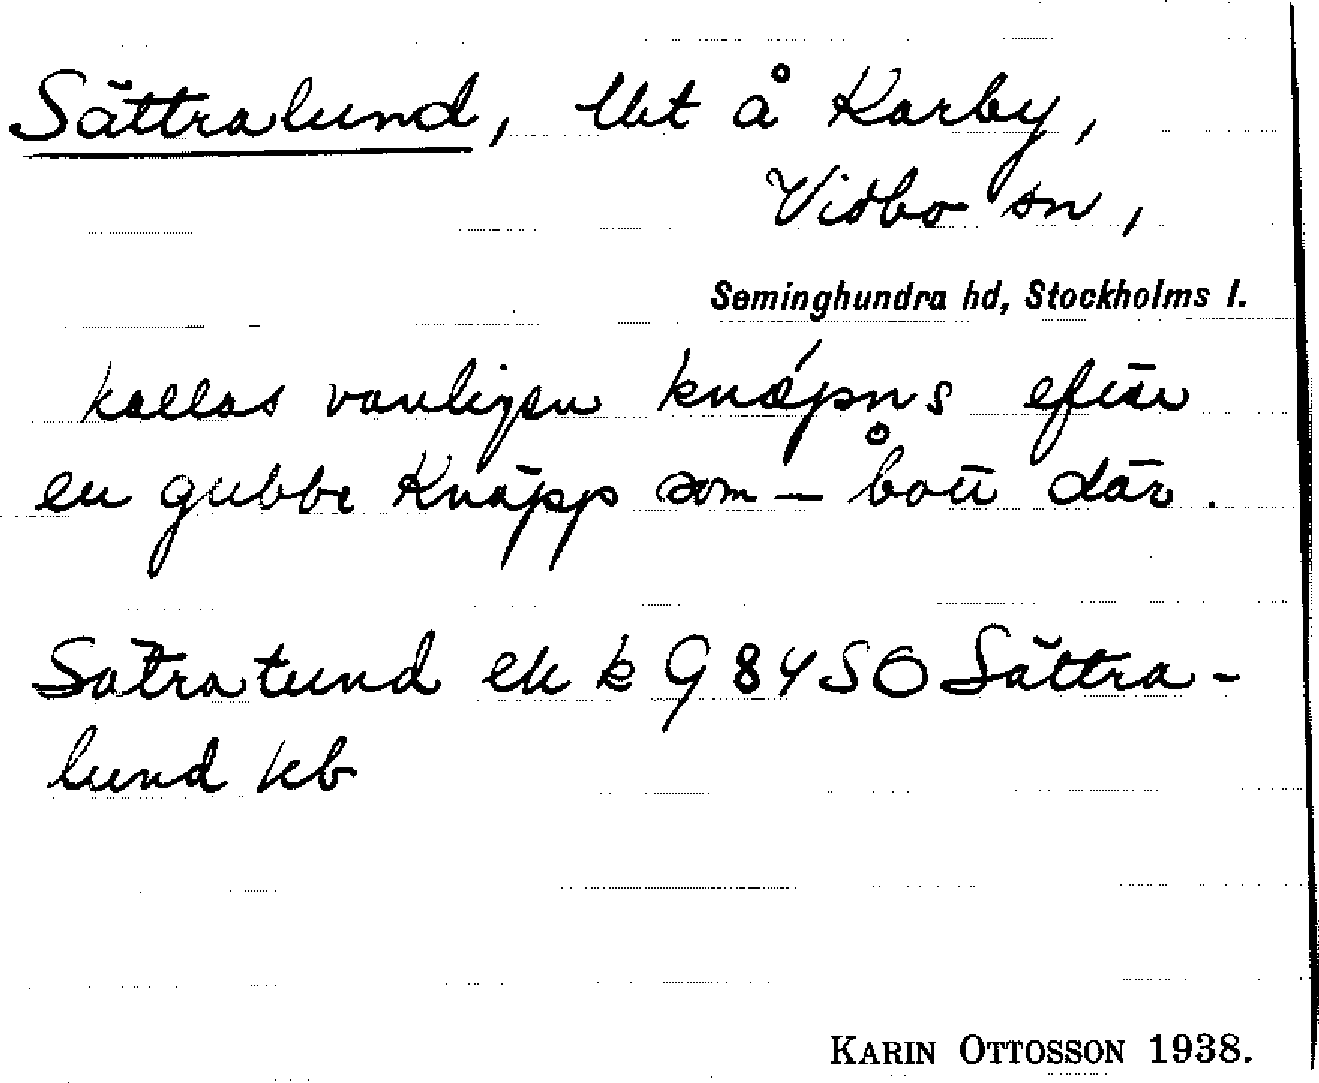 Sättralund, lht å Karby,
Vidbo sn,
Seminghundra hd, Stockholms l.
kallas vanligen knä́pns efter
en gubbe Knäpp som – bott där.
Sätralund ek k 98 Y SO Sättra-
lund kb
KARIN OTTOSSON 1938.